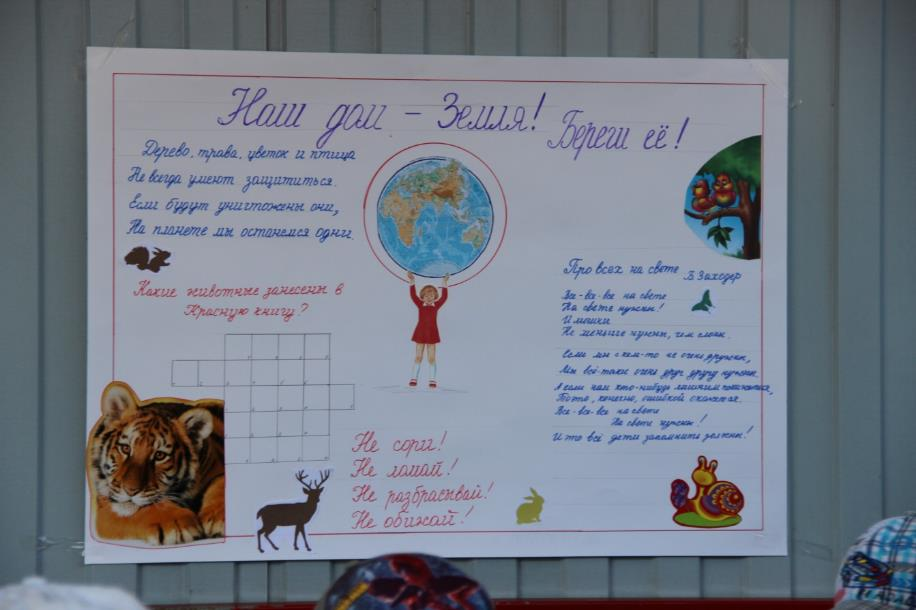 Наш дом - Земля! Береги её!
Дерево, трава, цветок и птица
Не всегда умеют защититься.
Если будут уничтожены они,
На планете мы останемся одни.
Какие животные занесены в
Красную книгу?
Не сори!
Не ломай!
Не разбрасывай!
Не обижай!
Про всех на свете
Б. Заходер
Все-все-все на свете
На свете нужны!
И мошки
Не меньше нужны, чем слоны.
Если мы с кем-то не очень дружны,
Мы всё-таки очень друг другу нужны
А если нам кто-нибудь лишним покажется,
То это, конечно, ошибкой окажется.
Все-все-все на свете
На свете нужны!
И это все дети запомнить должны!